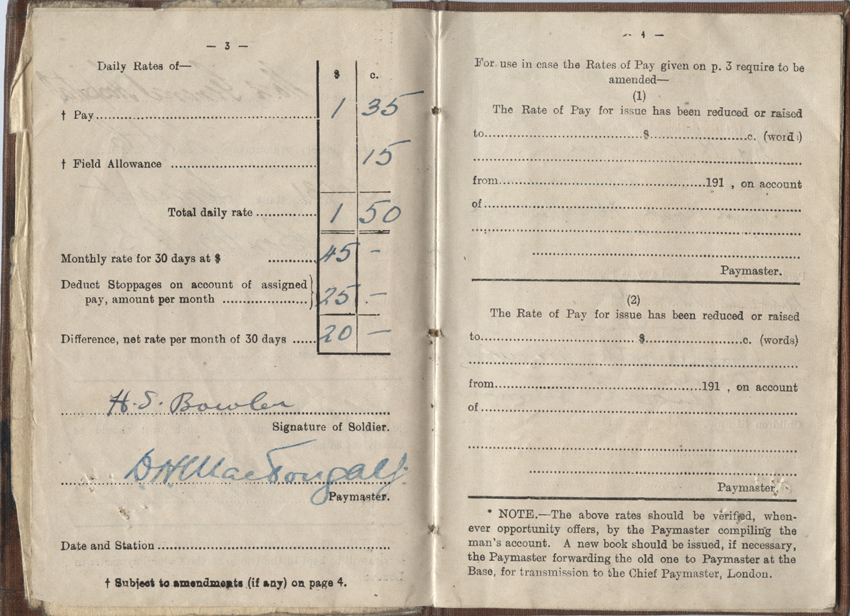 — 3 —
Daily Rates of—
$ c.
† Pay 1 35
† Field Allowance 15
Total daily rate 1 50
Monthly rate for 30 days at $ 45 –
Deduct Stoppages on account of assigned
pay, amount per month 25 . –
Difference, net rate per month of 30 days 20 –
H. S. Bowler
Signature of Soldier.
D H MacDougall
Paymaster.
Date and Station
† Subject to amendments (if any) on page 4.
— 4 —
For use in case the Rates of Pay given on p. 3 require to be
amended—
(1)
The Rate of Pay for issue has been reduced or raised
to $ c. (words)
from 191 , on account
of
Paymaster.
(2)
The Rate of Pay for issue has been reduced or raised
to $ c. (words)
from 191 , on account
of
Paymaster.
* NOTE.—The above rates should be verified, when-
ever opportunity offers, by the Paymaster compiling the
man's account. A new book should be issued, if necessary,
the Paymaster forwarding the old one to Paymaster at the
Base, for transmission to the Chief Paymaster, London.